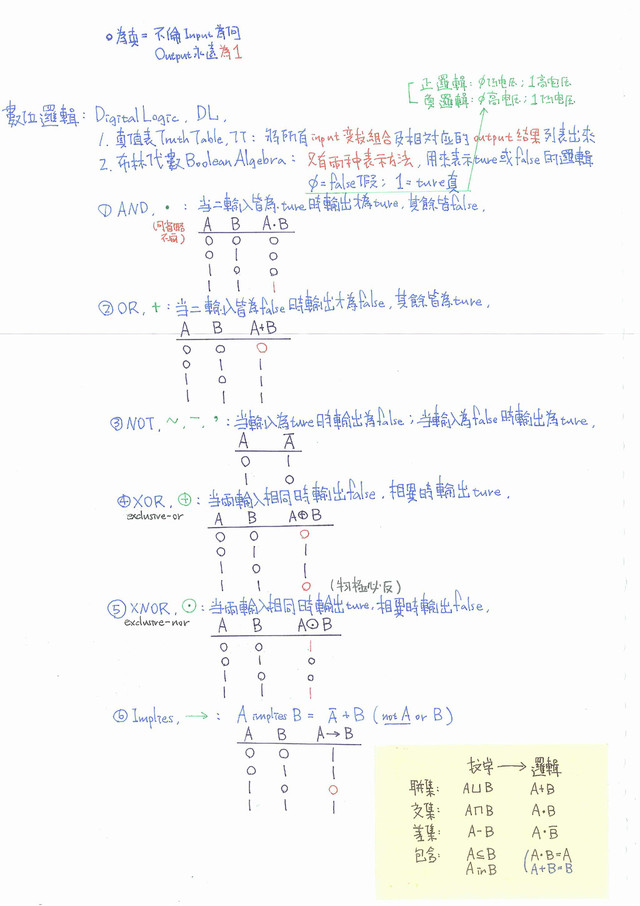 ○為真 = 不倫Input為何
Output永遠為1
正邏輯: 0低电压; 1高电压
負邏輯: 0高电压; 1低电压
數位邏輯: Digital Logic, DL,
1. 真值表Truth Table, TT: 將所有input变数組合及相对应的output結果列表出來
2. 布林代數Boolean Algebra: 只有兩种表示方法, 用來表示ture或false的邏輯
0=false假; 1=ture真
① AND, •: 当二輸入皆為ture時輸出才為ture, 其餘皆false,
(可省略不寫)
A B A·B
0 0 0
0 1 0
1 0 0
1 1 1
② OR, +: 当二輸入皆為false時輸出才為false, 其餘皆為ture,
A B A+B
0 0 0
0 1 1
1 0 1
1 1 1
③ NOT, ~, ‾, ’: 当輸入為ture時輸出為false; 当輸入為false時輸出為ture,
A A̅
0 1
1 0
④ XOR, ⊕: 当兩輸入相同時輸出false, 相異時輸出ture,
exclusive-or
A B A⊕B
0 0 0
0 1 1
1 0 1
1 1 0 (物極必反)
⑤ XNOR, ⊙: 当兩輸入相同時輸出ture, 相異時輸出false,
exclusive-nor
A B A⊙B
0 0 1
0 1 0
1 0 0
1 1 1
⑥ Implies, →: A implies B = A̅+B (not A or B)
A B A→B
0 0 1
0 1 1
1 0 0
1 1 1
数学 → 邏輯
聯集: A∪B A+B
交集: A∩B A·B
差集: A-B A·B̅
包含: A⊆B (A·B=A
A in B A+B=B